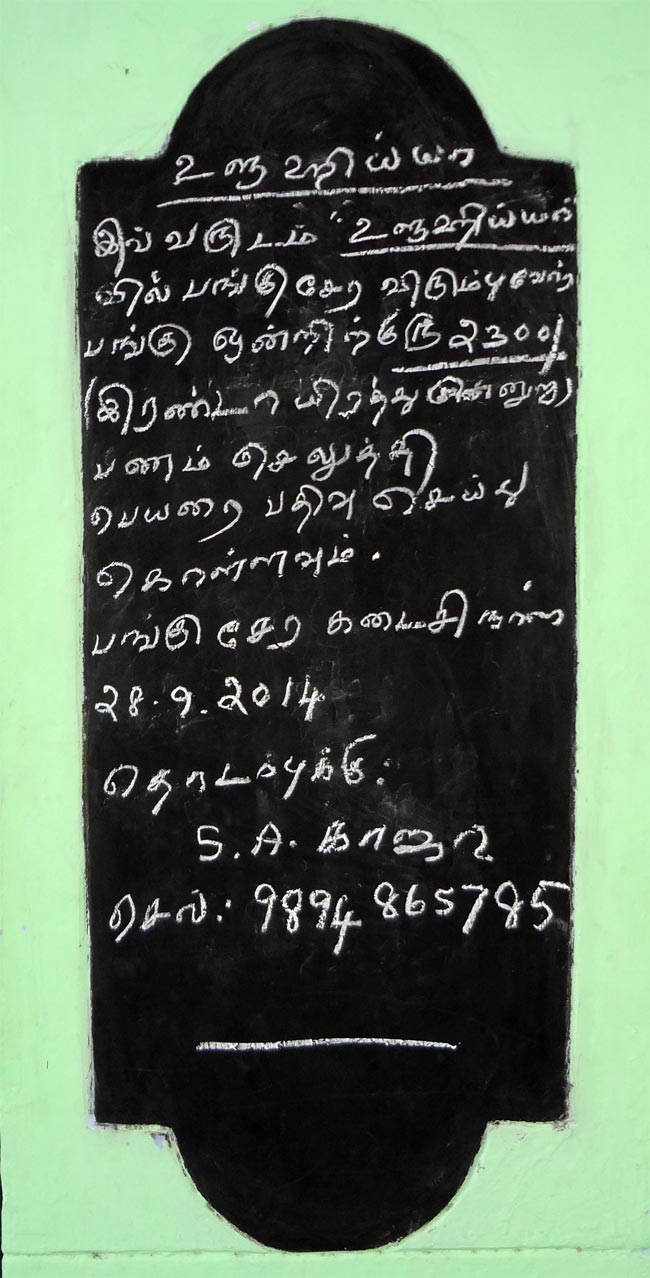 உளுஹிய்யா
இவ் வருடம் "உளுஹிய்யா"
வில் பங்கு சேர விரும்புவோர்
பங்கு ஒன்றிற்கு ரூ 2300/
(இரண்டாயிரத்து முன்னூறு)
பணம் செலுத்தி
பெயரை பதிவு செய்து
கொள்ளவும்.
பங்கு சேர கடைசி நாள்
28.9.2014
தொடர்புக்கு:
S.A. காஜா
செல்: 9894 865785